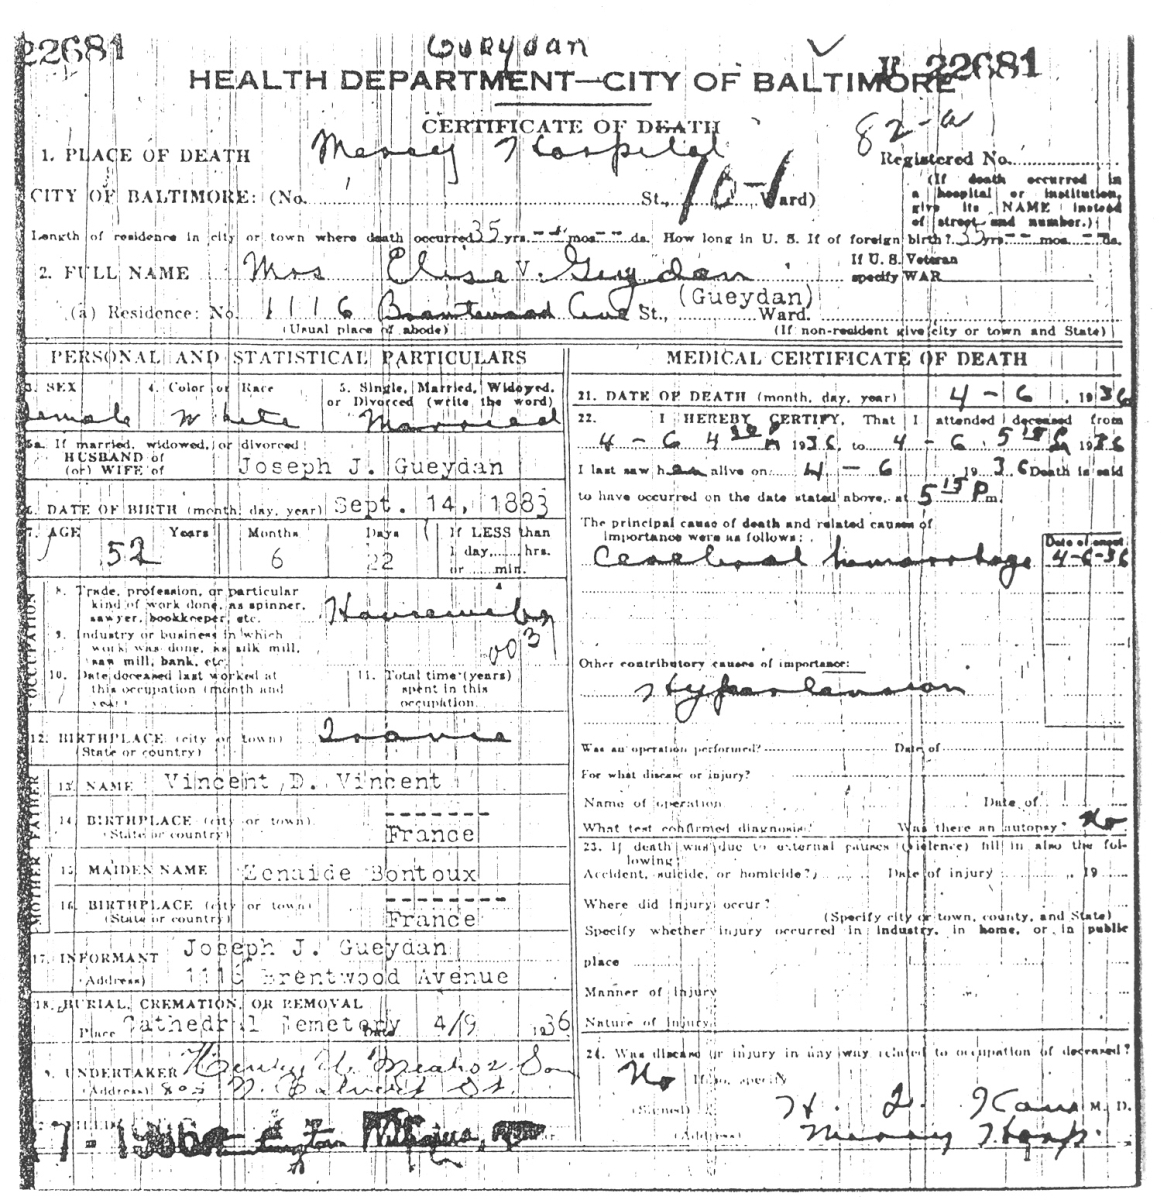 22681
Gueydan
H 22681
HEALTH DEPARTMENT—CITY OF BALTIMORE
CERTIFICATE OF DEATH
82-a
1. PLACE OF DEATH Mercy Hospital
Registered No.
CITY OF BALTIMORE: (No. St., 10-1 Ward)
(If death occurred in a hospital or institution, give its NAME instead of street and number.)
Length of residence in city or town where death occurred 35 yrs. -- mos. -- ds. How long in U. S. if of foreign birth? 35 yrs. -- mos. -- ds.
2. FULL NAME Mrs Elise V. Gueydan
(Gueydan)
If U. S. Veteran
specify WAR
(a) Residence: No. 1116 Brentwood Ave St., Ward.
(Usual place of abode) (If non-resident give city or town and State)
PERSONAL AND STATISTICAL PARTICULARS
3. SEX 4. Color or Race 5. Single, Married, Widowed, or Divorced (write the word)
Female White Married
5a. If married, widowed, or divorced
HUSBAND of
(or) WIFE of Joseph J. Gueydan
6. DATE OF BIRTH (month, day, year) Sept. 14, 1883
7. AGE Years Months Days If LESS than
52 6 22 1 day, hrs.
or min.
OCCUPATION
8. Trade, profession, or particular
kind of work done, as spinner,
sawyer, bookkeeper, etc. Housewife
9. Industry or business in which
work was done, as silk mill,
saw mill, bank, etc.
10. Date deceased last worked at
this occupation (month and
year)
11. Total time (years)
spent in this
occupation
12. BIRTHPLACE (city or town) France
(State or country)
FATHER
13. NAME Vincent D. Vincent
14. BIRTHPLACE (city or town) -------
(State or country) France
MOTHER
15. MAIDEN NAME Zenaide Bontoux
16. BIRTHPLACE (city or town) -------
(State or country) France
17. INFORMANT Joseph J. Gueydan
(Address) 1116 Brentwood Avenue
18. BURIAL, CREMATION, OR REMOVAL
Place Cathedral Cemetery Date 4/9 1936
19. UNDERTAKER Henry W. Mears & Son
(Address) 805 N. Calvert St.
MEDICAL CERTIFICATE OF DEATH
21. DATE OF DEATH (month, day, year) 4-6, 1936
22. I HEREBY CERTIFY, That I attended deceased from
4-6 1936, to 4-6 1936
I last saw her alive on 4-6 1936 Death is said
to have occurred on the date stated above, at 5 15 P m.
The principal cause of death and related causes of
importance were as follows: Date of onset
Cerebral hemorrhage 4-6-36
Other contributory causes of importance:
Hypertension
Was an operation performed? Date of
For what disease or injury?
Name of operation Date of
What test confirmed diagnosis? Was there an autopsy? No
23. If death was due to external causes (violence) fill in also the fol-
lowing:
Accident, suicide, or homicide? Date of injury 19
Where did injury occur?
(Specify city or town, county, and State)
Specify whether injury occurred in industry, in home, or in public
place
Manner of injury
Nature of injury
24. Was disease or injury in any way related to occupation of deceased?
No If so, specify
(Signed) M. D.
(Address) Mercy Hosp.